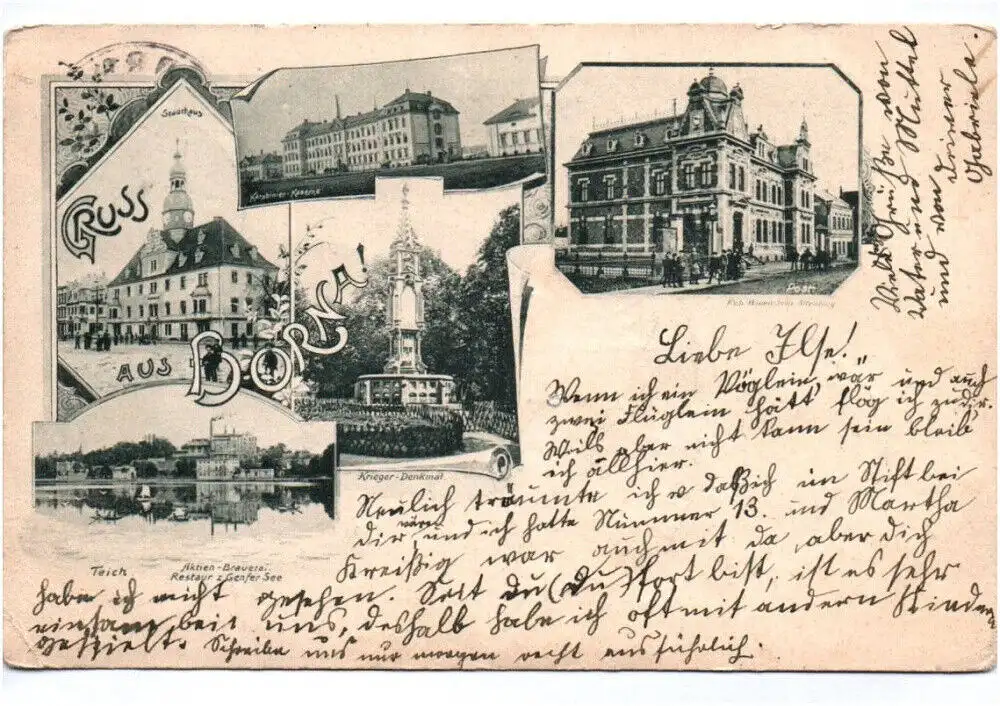 Stadthaus
Karabinier-Kaserne
GRUSS
AUS BORNA!
Post
Krieger-Denkmal
Teich
Aktien-Brauerei
Restaur. z. Genfer-See
Viele Grüße von
Vater und Muttel
und von Deiner
Gabriele.
Liebe Ilse!
„Wenn ich ein Vöglein, wär und auch
zwei Flüglein hätt' flög ich zu dir.
Weils aber nicht kann sein bleib
ich allhier.
Neulich träumte ich, daß ich im Stift bei
dir wäre und ich hatte Nummer 13. und Martha
Kreißig war auch mit da, aber dich
habe ich nicht gesehen. Seit du (Du) fort bist, ist es sehr
einsam bei uns, deshalb habe ich oft mit andern Kindern
gespielt. Schreibe uns nur morgen recht ausführlich.